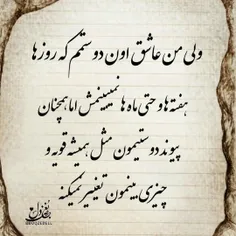 ولی من عاشق اون دوستم که روزها
هفته‌ها و حتی ماه‌ها نمیبینمش اما همچنان
پیوند دوستیمون مثل همیشه قویه و
چیزی بینمون تغییر نمیکنه